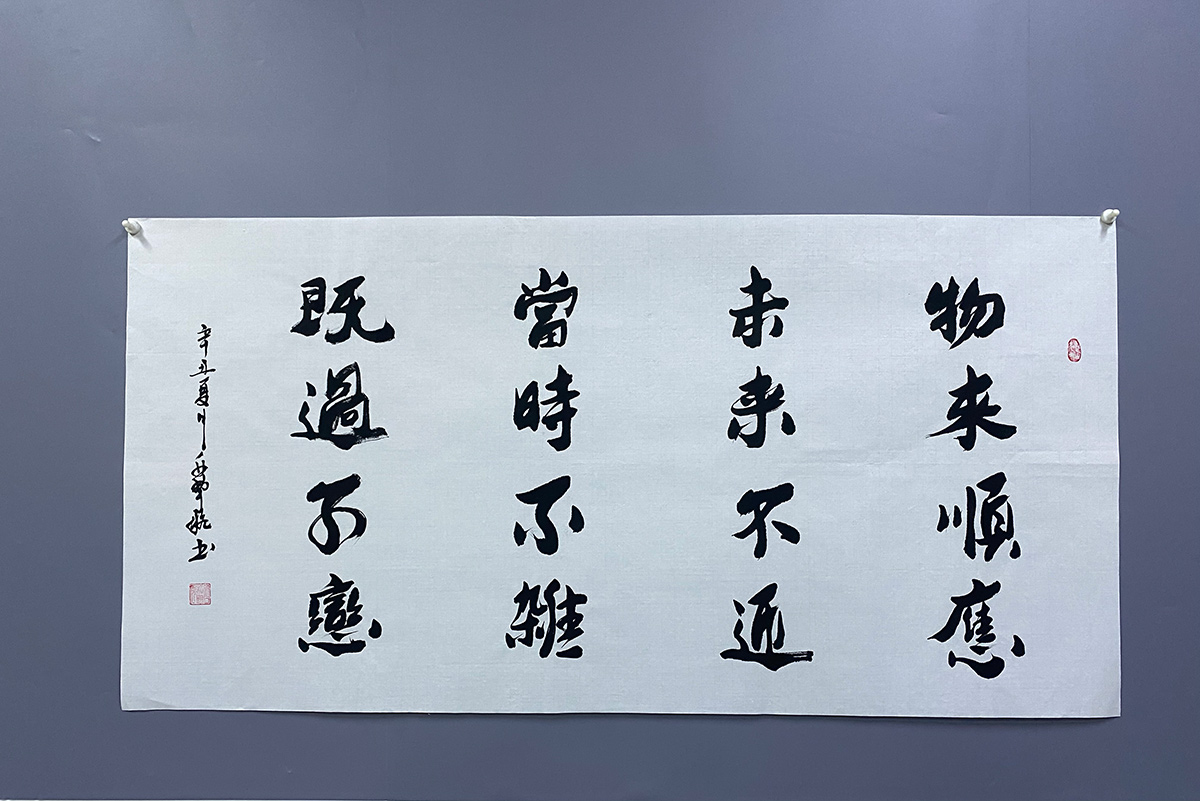 物來順應
未来不迎
當時不雜
既過不戀
辛丑夏月航书